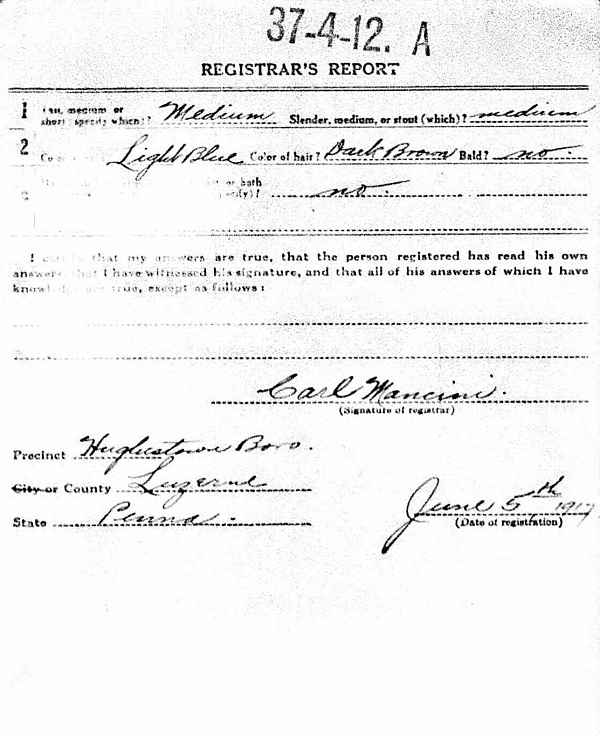 37-4-12. A
REGISTRAR'S REPORT
1 Tall, medium or short (specify which)? Medium Slender, medium, or stout (which)? medium
2 Light Blue Color of hair? Dark Brown Bald? no.
3 or both no.
I certify that my answers are true, that the person registered has read his own
answers, that I have witnessed his signature, and that all of his answers of which I have
knowledge are true, except as follows:
Carl Mancini.
(Signature of registrar)
Precinct Hughestown Boro.
City or County Luzerne
State Penna.
June 5th 1917
(Date of registration)